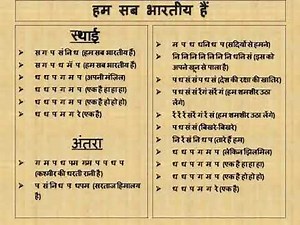 हम सब भारतीय हैं
स्थाई
स ग प सं नि ध (हम सब भारतीय हैं)
स ग प ध मे प (हम सब भारतीय हैं)
ध ध प ग म प (अपनी मंजिल)
ध ध प ग म ग (एक है हा हा हा)
ध ध प ग म प (एक है हो हो हो)
ध ध प म ग रे (एक है)
अंतरा
ग म प ध पम गम प प ध प
(कश्मीर की धरती रानी है)
प सं नि ध प धपम (सरताज हिमालय
है)
म प ध धनि ध प (सदियों से हमने)
नि नि नि नि नि नि नि धनि सं (इस को
अपने खून से पाला है)
प ध सं सं प ध सं (देश की रक्षा की खातिर)
प ध सं सं रें गं सं रें गं (हम शमशीर उठा
लेंगे)
रें रें रें सं रें गं रें सं (हम शमशीर उठा लेंगे)
प ध सं सं (बिखरे-बिखरे)
नि रें सं नि ध प (तारे हैं हम)
ध ध प ग म प (लेकिन झिलमिल)
ध ध प ग म ग (एक है हा हा हा)
ध ध प ग म प (एक है हो हो हो)
ध ध प म ग रे (एक है)